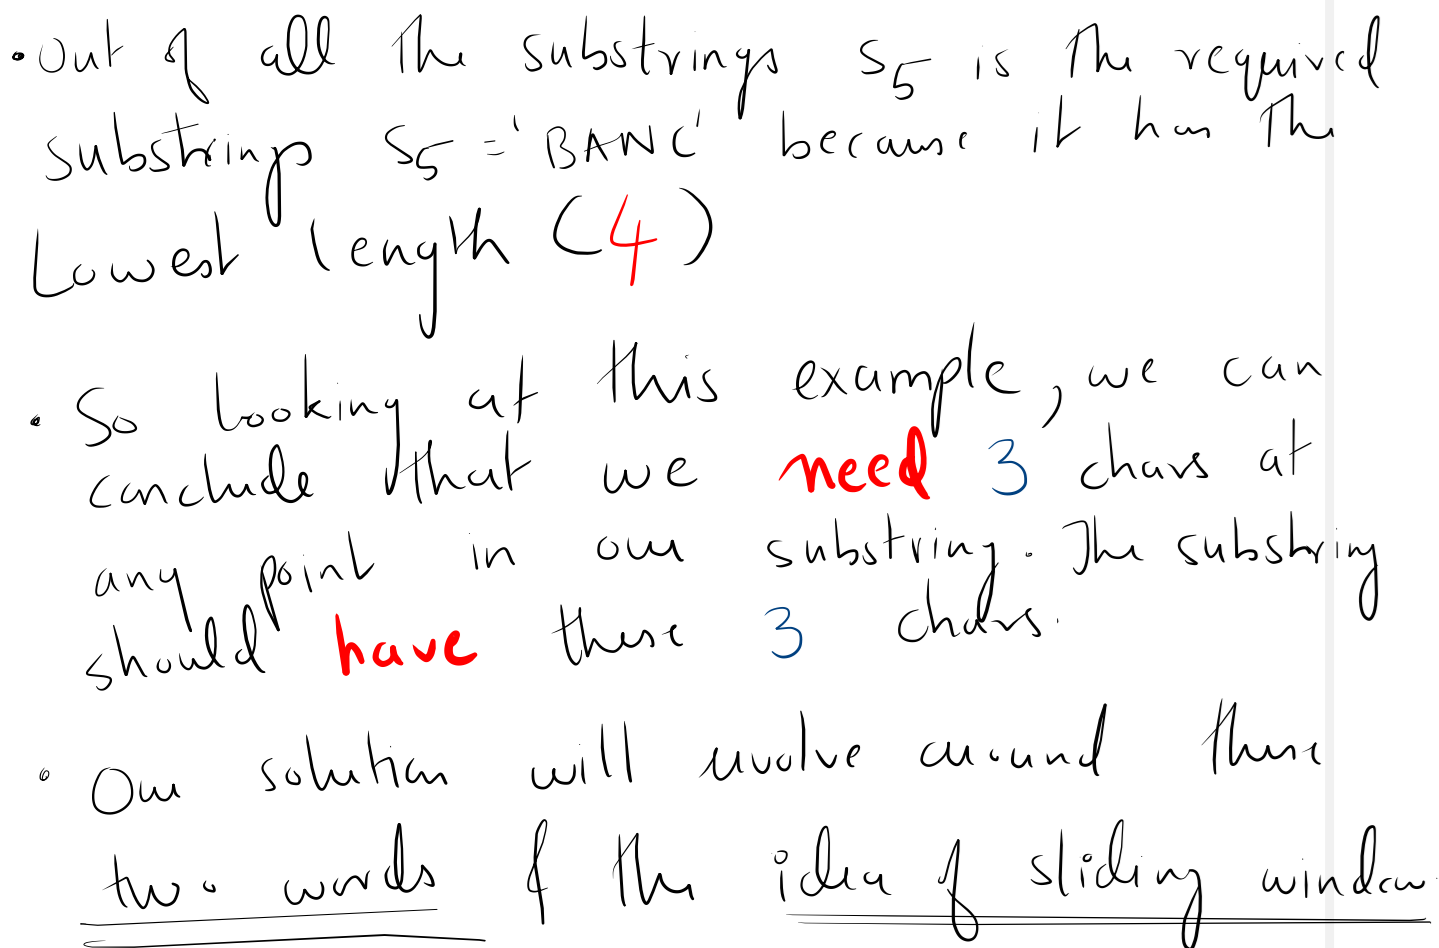 • Out of all the substrings S5 is the required
substrings S5 = 'BANC' because it has the
Lowest length (4)
• So looking at this example, we can
conclude that we need 3 chars at
any point in our substring. The substring
should have these 3 chars.
• Our solution will revolve around these
two words & the idea of sliding window